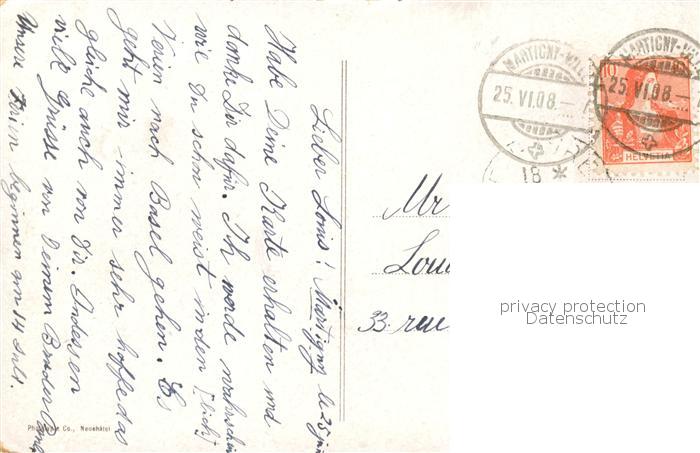 Lieber Louis! Martigny le 25 juin
Habe Deine Karte erhalten und
danke Dir dafür. Ich werde wahrschein
wie Du schon weist in den [lich]
Ferien nach Basel gehen. Es
geht mir immer sehr hoffe das
gleiche auch von Dir. Indessen
viele Grüsse von Deinem Bruder
Unsere Ferien beginnen am 14 Juli.
MARTIGNY-VILLE
25.VI.08.
MARTIGNY-VILLE
25.VI.08.
18
10
HELVETIA
Mr
Loui
33. rue
privacy protection
Datenschutz
Co., Neuchâtel